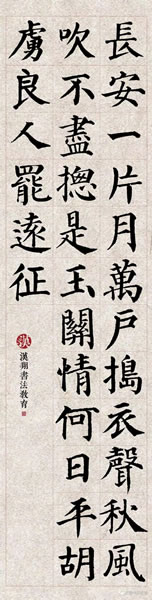 長安一片月萬戶搗衣聲秋風
吹不盡摠是玉關情何日平胡
虜良人罷遠征
漢翔書法教育